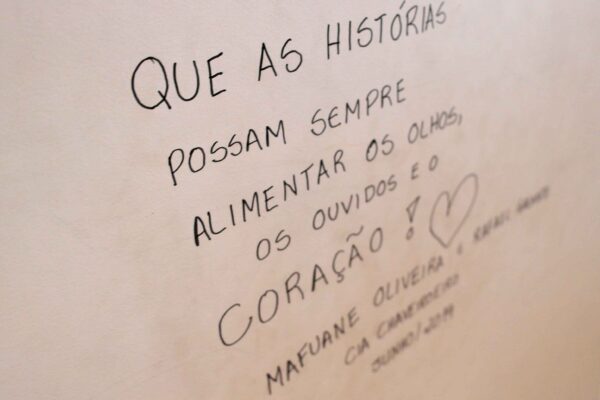 QUE AS HISTÓRIAS
POSSAM SEMPRE
ALIMENTAR OS OLHOS,
OS OUVIDOS E O
CORAÇÃO!
MAFUANE OLIVEIRA E RAFAEL
CIA CHAVEIROEIRO
JUNHO/2019